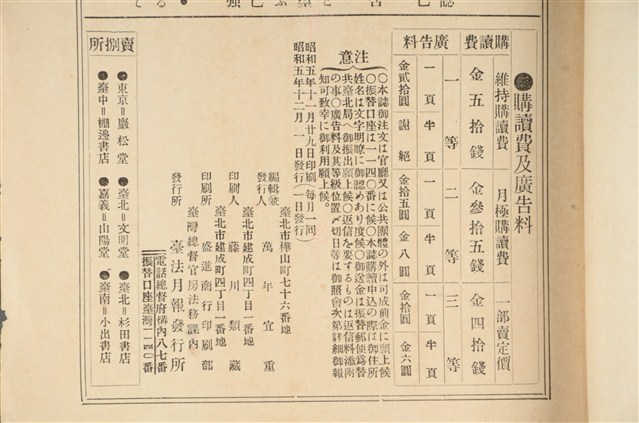 購讀費及廣告料
購讀費
維持購讀費 金五拾錢
月極購讀費 金參拾五錢
一部賣定價 金四拾錢
廣告料
一等 一頁 金貳拾圓 半頁 謝絕
二等 一頁 金拾五圓 半頁 金八圓
三等 一頁 金拾圓 半頁 金六圓
注意
〇本誌御注文は官廳又は公共團體の外は可成前金に願上候
〇振替口座は一一四〇番に候〇本誌購讀申込の際は御住所
姓名は文字明瞭に御認めあり度候〇御送金は振替郵便爲替
共臺北局へ御振出願上候〇返信を要するものは返信料添附
の事〇廣告料及其等級位置〆切日等は御照會次第詳細御報
知可致幸に御利用願上候。
昭和五年十一月廿九日印刷(每月一回)
昭和五年十二月一日發行(一日發行)
臺北市樺山町七十六番地
編輯兼發行人 萬年宜重
臺北市建成町四丁目一番地
印刷人 藤川類藏
臺北市建成町四丁目一番地
印刷所 盛進商行印刷部
臺灣總督官房法務課內
發行所 臺法月報發行所
電話總督府構內八七番
振替口座臺灣一一四〇番
賣捌所
東京=巖松堂
臺北=文明堂
臺北=杉田書店
臺中=棚邊書店
嘉義=山陽堂
臺南=小出書店